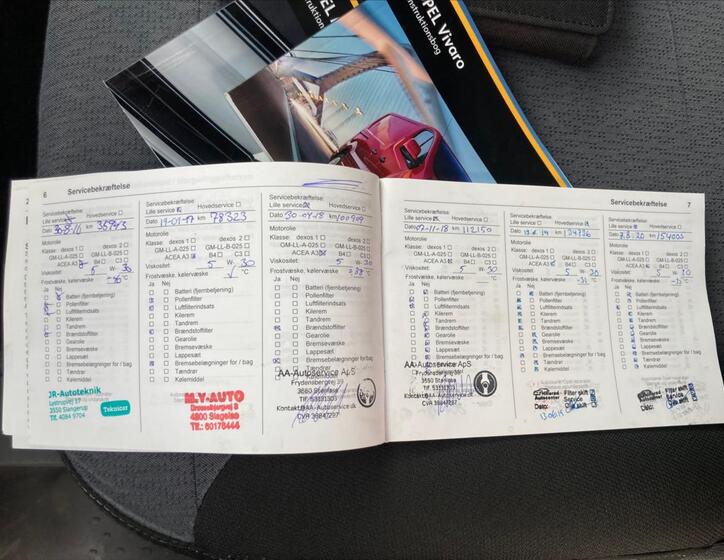 OPEL Vivaro
Instruktionsbog
6
Servicebekræftelse
Servicebekræftelse:
Lille service Hovedservice
Dato 30.8.16 km 35743
Motorolie
Klasse: dexos 1 dexos 2
GM-LL-A-025 GM-LL-B-025
ACEA A3 B4 C3
Viskositet: 5 W- 30
Frostvæske, kølervæske °C
Ja Nej
Batteri (fjernbetjening)
Pollenfilter
Luftfilterindsats
Kilerem
Tandrem
Brændstoffilter
Gearolie
Bremsevæske
Lappesæt
Bremsebelægninger for / bag
Tændrør
Kølemiddel
JR-Autoteknik
3550 Slangerup
Tlf. 4084 9704
Teknicar
Servicebekræftelse:
Lille service Hovedservice
Dato 19-01-17 km 78323
Motorolie
Klasse: dexos 1 dexos 2
GM-LL-A-025 GM-LL-B-025
ACEA A3 B4 C3
Viskositet: 5 W- 30
Frostvæske, kølervæske °C
Ja Nej
Batteri (fjernbetjening)
Pollenfilter
Luftfilterindsats
Kilerem
Tandrem
Brændstoffilter
Gearolie
Bremsevæske
Lappesæt
Bremsebelægninger for / bag
Tændrør
Kølemiddel
M.Y-AUTO
4200 Slagelse
Tlf.: 60178444
Servicebekræftelse:
Lille service Hovedservice
Dato 30-04-18 km 100909
Motorolie
Klasse: dexos 1 dexos 2
GM-LL-A-025 GM-LL-B-025
ACEA A3 B4 C3
Viskositet: 5 W- 30
Frostvæske, kølervæske °C
Ja Nej
Batteri (fjernbetjening)
Pollenfilter
Luftfilterindsats
Kilerem
Tandrem
Brændstoffilter
Gearolie
Bremsevæske
Lappesæt
Bremsebelægninger for / bag
Tændrør
AA-Autoservice ApS
Frydensbergvej 39
3660 Stenløse
Tlf. 53331303
Kontakt@AA-Autoservice.dk
CVR 38847297
Servicebekræftelse
7
Servicebekræftelse:
Lille service Hovedservice
Dato 02-11-18 km 112150
Motorolie
Klasse: dexos 1 dexos 2
GM-LL-A-025 GM-LL-B-025
ACEA A3 B4 C3
Viskositet: 5 W- 30
Frostvæske, kølervæske °C
Ja Nej
Batteri (fjernbetjening)
Pollenfilter
Luftfilterindsats
Kilerem
Tandrem
Brændstoffilter
Gearolie
Bremsevæske
Lappesæt
Bremsebelægninger for / bag
AA-Autoservice ApS
Frydensbergvej 39
3660 Stenløse
Servicebekræftelse:
Lille service Hovedservice
Motorolie
Klasse: dexos 1 dexos 2
GM-LL-A-025 GM-LL-B-025
ACEA A3 B4 C3
Viskositet: 5 W- 30
Frostvæske, kølervæske -31 °C
Ja Nej
Batteri (fjernbetjening)
Pollenfilter
Luftfilterindsats
Kilerem
Tandrem
Brændstoffilter
Gearolie
Bremsevæske
Lappesæt
Bremsebelægninger for / bag
Tændrør
Kølemiddel
Filter skift
Service
Dato:
Servicebekræftelse:
Lille service Hovedservice
Dato 7.8.20 km 154003
Motorolie
Klasse: dexos 1 dexos 2
GM-LL-A-025 GM-LL-B-025
ACEA A3 B4 C3
Viskositet: 5 W-
Frostvæske, kølervæske °C
Ja Nej
Batteri (fjernbetjening)
Pollenfilter
Luftfilterindsats
Kilerem
Tandrem
Brændstoffilter
Gearolie
Bremsevæske
Lappesæt
Bremsebelægninger for / bag
Tændrør
Kølemiddel
Filter skift
Service
Dato: